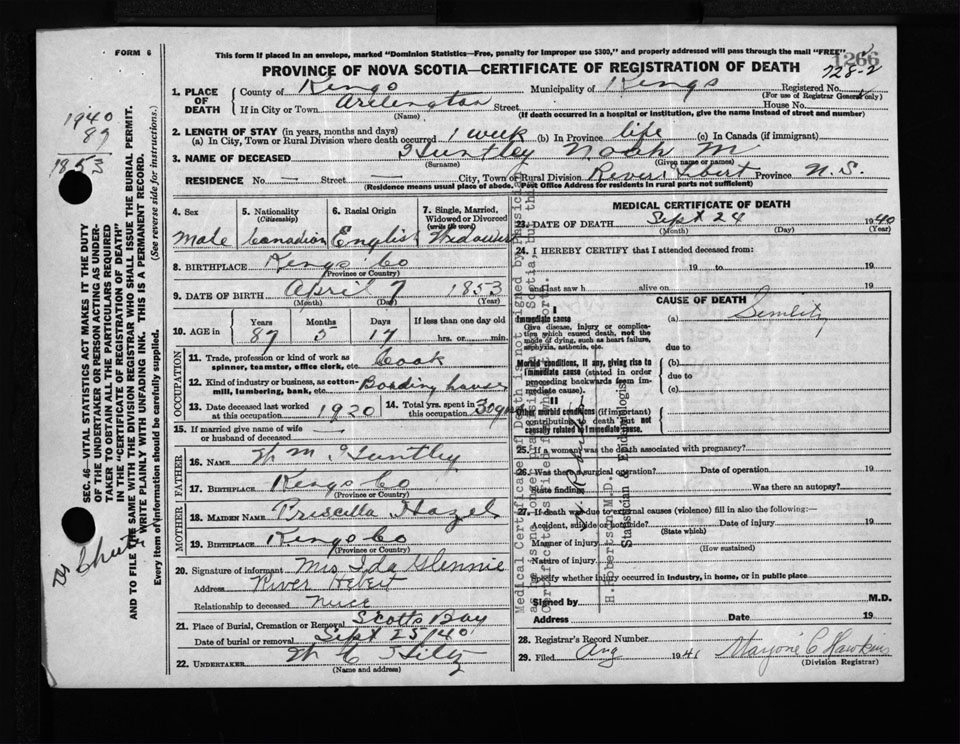 FORM 6
This form if placed in an envelope, marked "Dominion Statistics—Free, penalty for improper use $300," and properly addressed will pass through the mail "FREE"
1266
PROVINCE OF NOVA SCOTIA—CERTIFICATE OF REGISTRATION OF DEATH
728-2
1. PLACE OF DEATH
County of Kings
Municipality of Kings
Registered No.
(For use of Registrar General only)
If in City or Town Arlington Street House No.
(Name) (If death occurred in a hospital or institution, give the name instead of street and number)
2. LENGTH OF STAY (in years, months and days)
(a) In City, Town or Rural Division where death occurred 1 week (b) In Province life (c) In Canada (if immigrant)
3. NAME OF DECEASED Huntley Noah M
(Surname) (Given name or names)
RESIDENCE No. — Street — City, Town or Rural Division River Hebert Province N.S.
(Residence means usual place of abode. Post Office Address for residents in rural parts not sufficient)
4. Sex
Male
5. Nationality
(Citizenship)
Canadian
6. Racial Origin
English
7. Single, Married, Widowed or Divorced
(write the word)
8. BIRTHPLACE Kings Co
(Province or Country)
9. DATE OF BIRTH April 7 1853
(Month) (Day) (Year)
10. AGE in
Years Months Days If less than one day old
87 5 17 hrs. or min.
OCCUPATION
11. Trade, profession or kind of work as spinner, teamster, office clerk, etc. Cook
12. Kind of industry or business, as cotton-mill, lumbering, bank, etc. Boarding house
13. Date deceased last worked at this occupation 1920
14. Total yrs. spent in this occupation 30 yrs
15. If married give name of wife or husband of deceased —
FATHER
16. NAME W M Huntley
17. BIRTHPLACE Kings Co
(Province or Country)
MOTHER
18. MAIDEN NAME Priscilla Hazel
19. BIRTHPLACE Kings Co
(Province or Country)
20. Signature of informant Mrs Ida Glennie
Address River Hebert
Relationship to deceased
21. Place of Burial, Cremation or Removal Scotts Bay
Date of burial or removal Sept 25/40
22. UNDERTAKER W C Hiltz
MEDICAL CERTIFICATE OF DEATH
23. DATE OF DEATH Sept 24 1940
(Month) (Day) (Year)
24. I HEREBY CERTIFY that I attended deceased from:
19 to 19
and last saw h alive on 19
CAUSE OF DEATH
I
Immediate cause
Give disease, injury or complication which caused death, not the mode of dying, such as heart failure, asphyxia, asthenia, etc.
(a) Senility
due to
Morbid conditions, if any, giving rise to immediate cause (stated in order proceeding backwards from immediate cause).
(b)
due to
(c)
II
Other morbid conditions (if important) contributing to death but not causally related to immediate cause.
25. If a woman was the death associated with pregnancy?
26. Was there a surgical operation? Date of operation 19
State findings Was there an autopsy?
27. If death was due to external causes (violence) fill in also the following:—
Accident, suicide or homicide? Date of injury 19
(State which)
Manner of injury
(How sustained)
Nature of injury
Specify whether injury occurred in industry, in home, or in public place
Signed by M.D.
Address Date 19
28. Registrar's Record Number
29. Filed Aug 1941 Marjorie C Hawkins
(Division Registrar)
1940
87
1853
SEC. 46—VITAL STATISTICS ACT MAKES IT THE DUTY OF THE UNDERTAKER OR PERSON ACTING AS UNDERTAKER TO OBTAIN ALL THE PARTICULARS REQUIRED IN THE "CERTIFICATE OF REGISTRATION OF DEATH" AND TO FILE THE SAME WITH THE DIVISION REGISTRAR WHO SHALL ISSUE THE BURIAL PERMIT.
WRITE PLAINLY WITH UNFADING INK. THIS IS A PERMANENT RECORD.
Every item of information should be carefully supplied. (See reverse side for instructions.)
Medical Certificate of Death not signed by physician
H. Robertson M.D.
Statistician & Epidemiologist